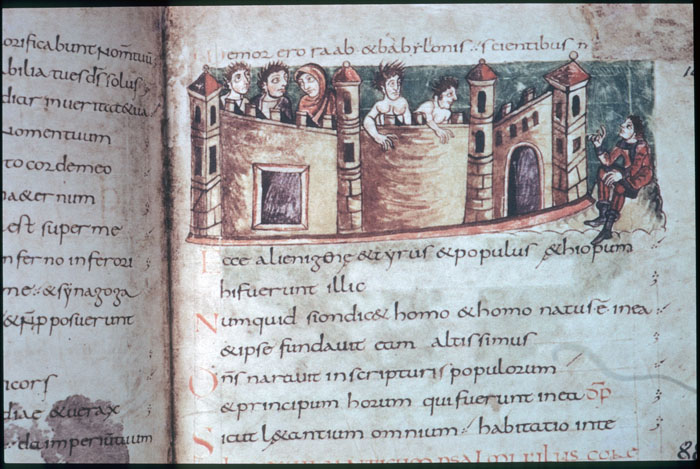 orificabunt nom̄tuū
abilia tues d̄s solus
dias inveritat&ua
nomentuum
to cordemeo
na&ernum
est superme
nferno inferori
me & synagoga
&n̄p posuerunt
icors
diae & verax
da imperiūtuum
memor ero raab & babylonis scientibus m
Ecce alienigene & tyrus & populus &hiopum
hifuerunt illic
Numquid siondic& homo & homo natusē inea
&ipse fundavit eam altissimus
Dn̄s narravit inscripturis populorum
&principum horum quifuerunt inea
Sicut l&antium omnium habitatio inte
8